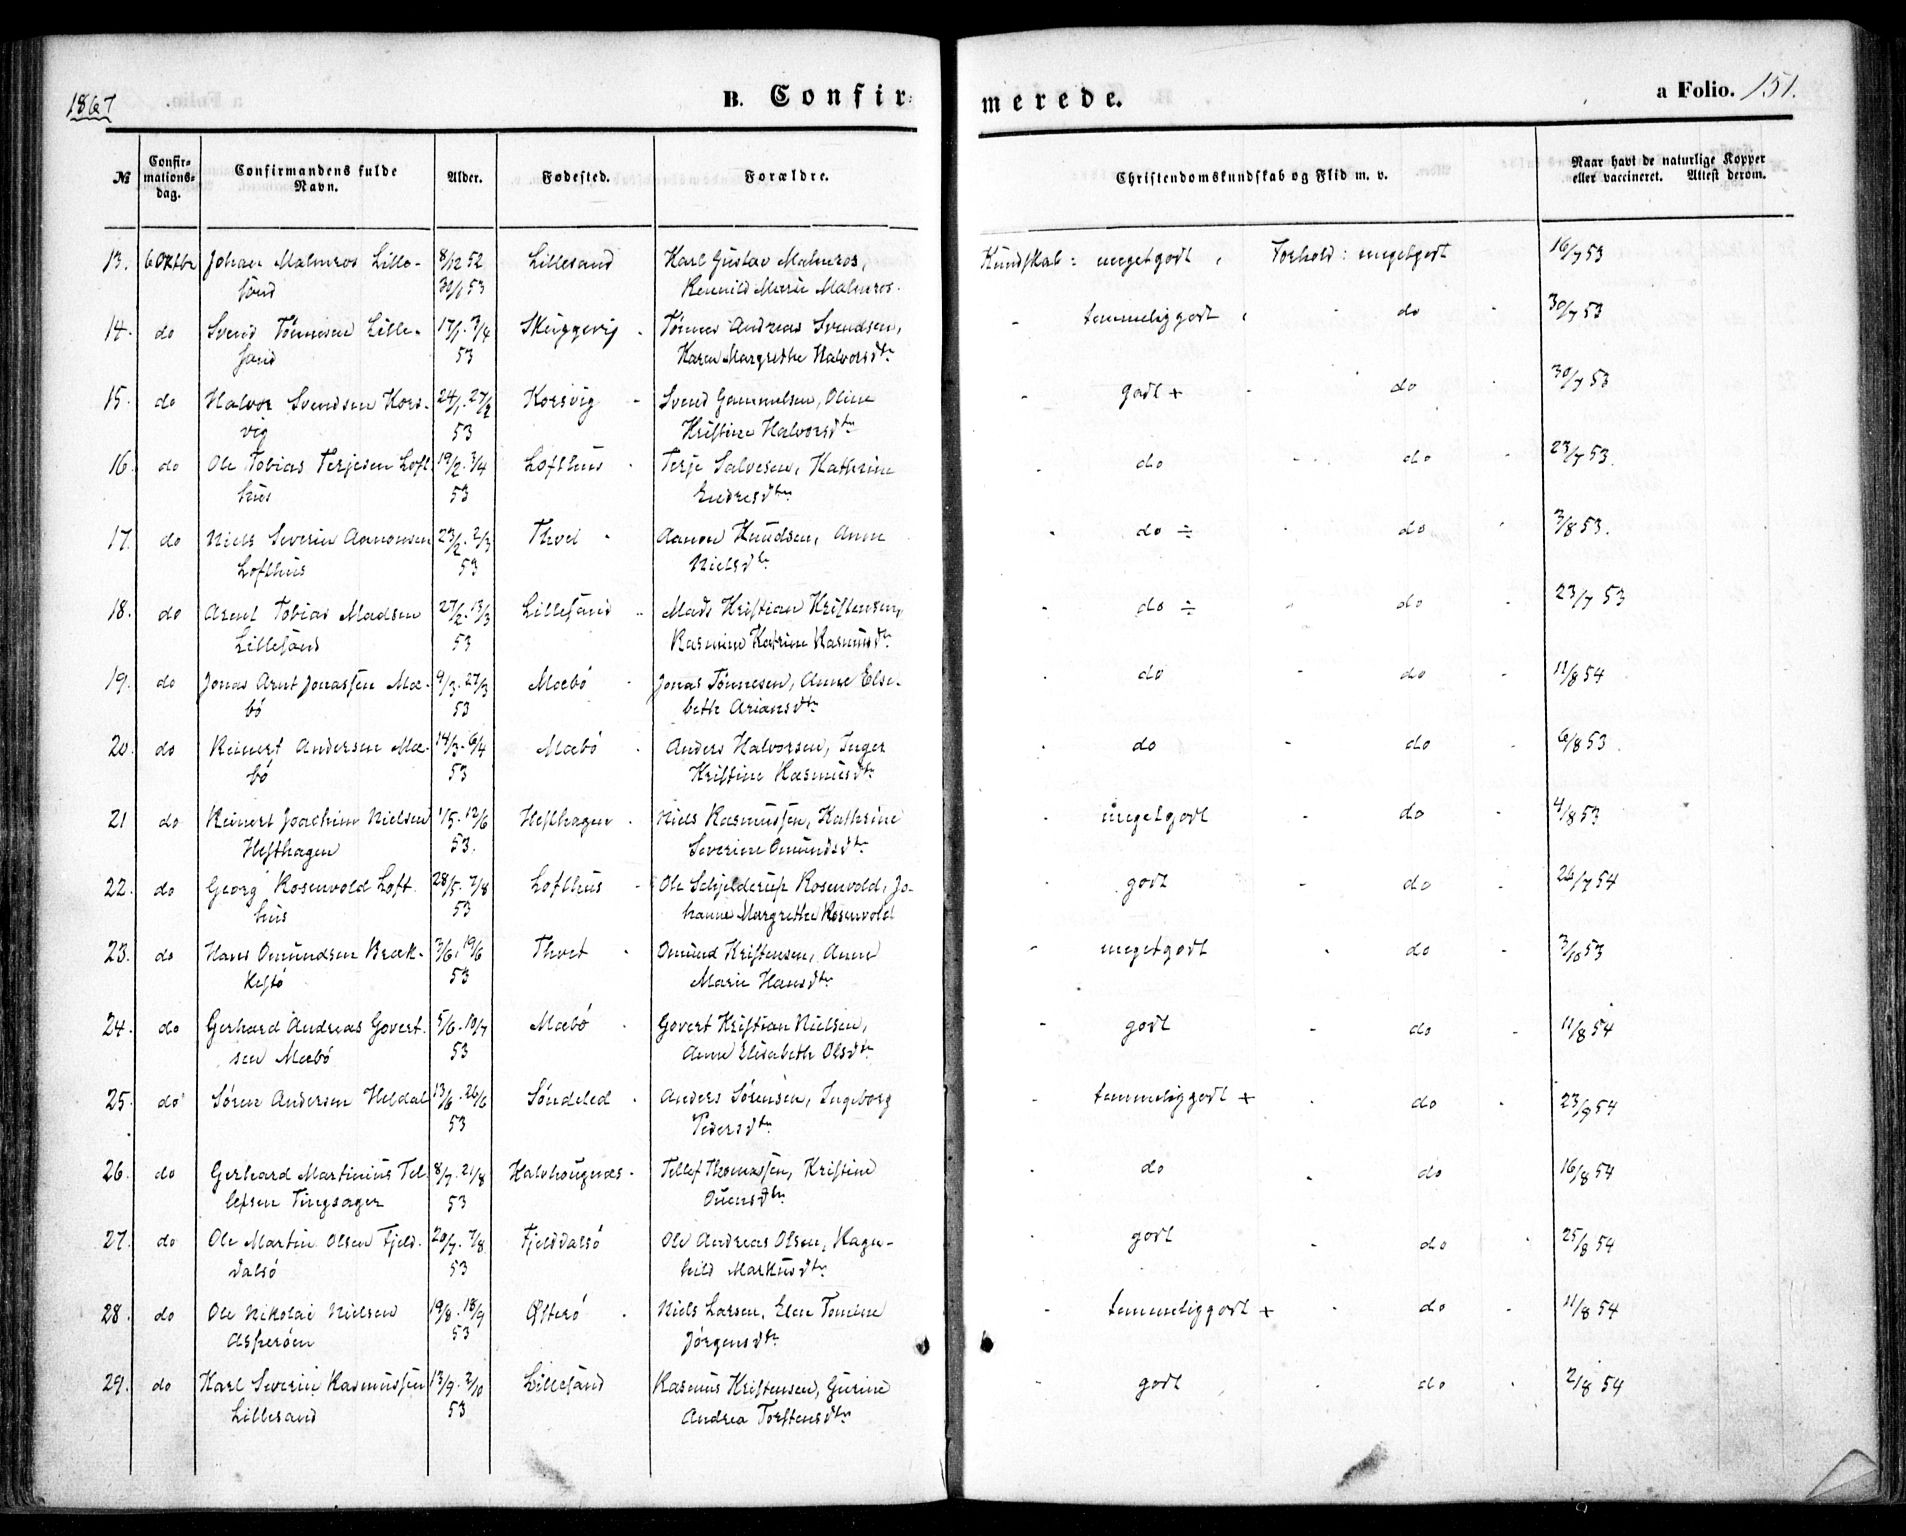 1867
B. Confir-
merede.
a Folio. 151.
№
Confir-
mations-
dag.
Confirmandens fulde
Navn.
Alder.
Fødested.
Forældre.
Christendomskundskab og Flid m. v.
Naar havt de naturlige Kopper
eller vaccineret. Attest derom.
13. 6 Oktbr Johan Malmros Lille- 8/12 52 Lillesand Karl Gustav Malmros, Kundskab: megetgodt, Forhold: megetgodt 16/7 53
sand 30/1 53 Marie Malmros.
14. do Svend Tønnesen Lille- 17/1. 3/4 Skuggevig Tønnes Andreas Svendsen, temmeliggodt, do 30/7 53
sand 53 Karen Margrethe Halvorsdtr
15. do Halvor Svendsen Kors- 24/1. 27/2 Korsvig Svend Gammelsen, Oline godt + do 30/7 53
vig 53 Kristine Halvorsdtr
16. do Ole Tobias Terjesen Loft- 19/2. 3/4 Lofthus Terje Salvesen, Kathrine do do 23/7 53.
hus 53 Endresdtr
17. do Niels Severin Aanonsen 23/2. 2/3 Thvet Aanon Knudsen, Anne do ÷ do 3/8 53.
Lofthus 53 Nielsdtr
18. do Arent Tobias Madsen 27/2. 13/3 Lillesand Mads Kristian Kristensen, do ÷ do 23/7 53
Lillesand 53 Rasmine Katrine Rasmusdtr
19. do Jonas Arnt Jonassen Mæ- 9/3. 27/3 Mæbö Jonas Tønnesen, Anne Else- do do 11/8 54
bö 53 beth Ariansdtr
20. do Reinert Andersen Mæ- 14/3. 6/4 Mæbö Anders Halvorsen, Inger do do 6/8 53.
bö 53 Kristine Rasmusdtr
21 do Reinert Joachim Nielsen 1/5. 12/6 Hesthagen Niels Rasmussen, Kathrine megetgodt do 4/8 53
Hesthagen 53. Severine Omundsdtr
22. do Georg Rosenvold Loft- 28/5. 7/8 Lofthus Ole Schjelderup Rosenvold, Jo- godt do 26/7 54
hus 53 hanne Margrethe Rosenvold
23. do Hans Omundsen Bræk- 3/6. 19/6 Thvet Omund Kristensen, Anne megetgodt do 3/10 53
kestö 53 Marie Hansdtr
24. do Gerhard Andreas Govert- 5/6. 10/7 Mæbö Govert Kristian Nielsen, godt do 11/8 54
sen Mæbö 53 Anne Elisabeth Olsdtr
25. do Søren Andersen Heldal 13/6. 26/6 Søndeled Anders Sørensen, Ingeborg temmeliggodt + do 23/9 54
53 Pedersdtr
26. do Gerhard Martinius Tel- 8/7. 21/8 Halvhougnæs Tellef Thomassen, Kristine do do 16/8 54
lefsen Tingsager 53
27. do Ole Martin Olsen Fjeld- 20/7. 7/8 Fjelddalsö Ole Andreas Olsen, Ragn- godt do 25/8 54
dalsö 53 hild Markusdtr
28. do Ole Nikolai Nielsen 19/8. 18/9 Østerö Niels Larsen, Elen Tomine temmeliggodt + do 11/8 54
Asperöen 53 Jørgensdtr
29. do Karl Severin Rasmussen 13/9. 2/10 Lillesand Rasmus Kristensen, Gurine godt do 2/8 54
Lillesand 53 Andrea Torstensdtr